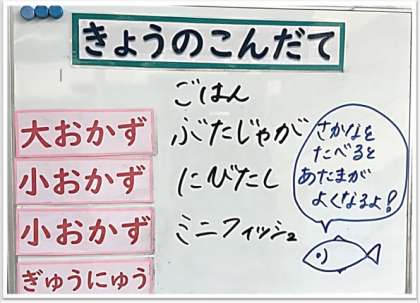 きょうのこんだて
ごはん
大おかず ぶたじゃが
小おかず にびたし
小おかず ミニフィッシュ
ぎゅうにゅう
さかなを
たべると
あたまが
よくなるよ!